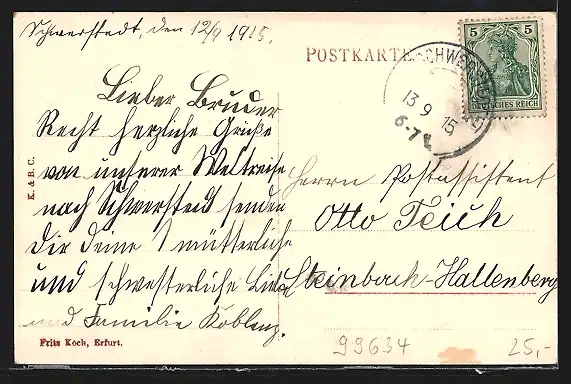 Schwerstedt, den 12/9 1915.
POSTKARTE
SCHWERSTEDT
13 9 15
6-7
5 5
DEUTSCHES REICH
Lieber Bruder
Recht herzliche Grüße
von unserer Weltreise
nach Schwerstedt senden
Dir deine mütterliche
und schwesterliche
und Familie Koblenz.
Herrn Postassistent
Otto Teich
Steinbach-Hallenberg
K. & B. C.
Fritz Koch, Erfurt.
99634
25,-